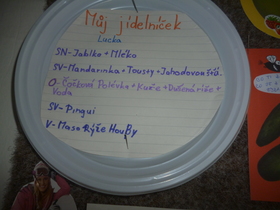 Můj jídelníček
Lucka
SN-Jablko+Mléko
SV-Mandarinka+Tousty+Jahodovou šťá.
O-Čočková Polévka+Kuře+Dušená rýže+
Voda
SV-Pingui
V-Maso Rýže Houby